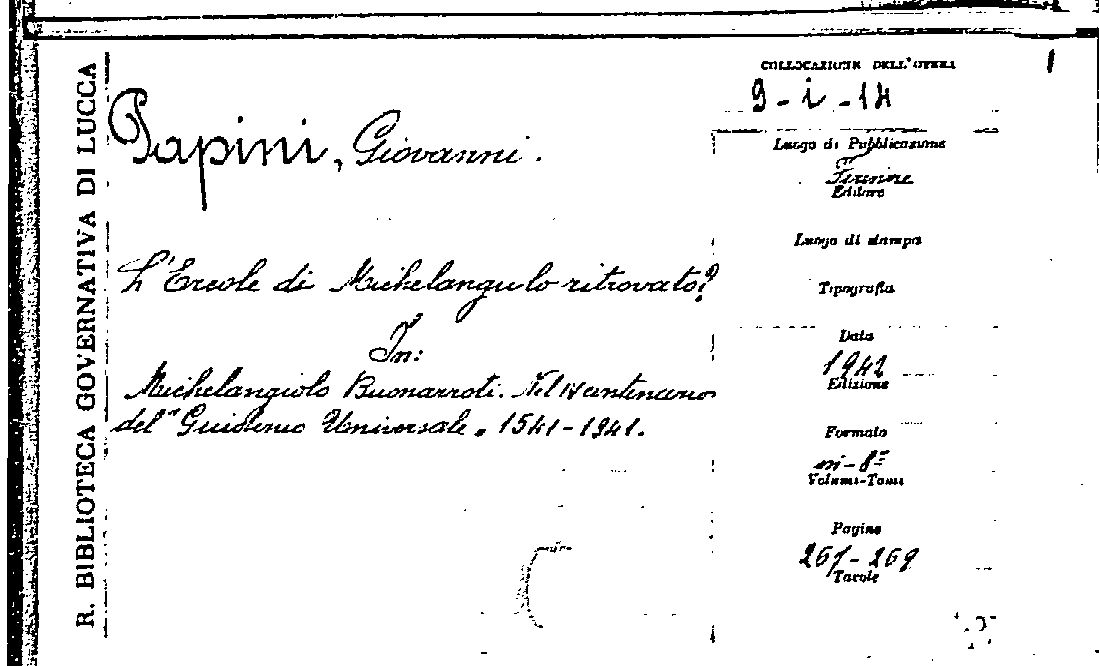 R. BIBLIOTECA GOVERNATIVA DI LUCCA
Papini, Giovanni.
L'Ercole di Michelangulo ritrovato?
In:
Michelangiolo Buonarroti. Nel IV centenario
del "Giudizio Universale". 1541-1941.
COLLOCAZIONE DELL'OPERA
9 - i - 14
Luogo di Pubblicazione
Firenze
Editore
Luogo di stampa
Tipografia
Data
1942
Edizione
Formato
in-8º
Volumi-Tomi
Pagine
267-269
Tavole
1